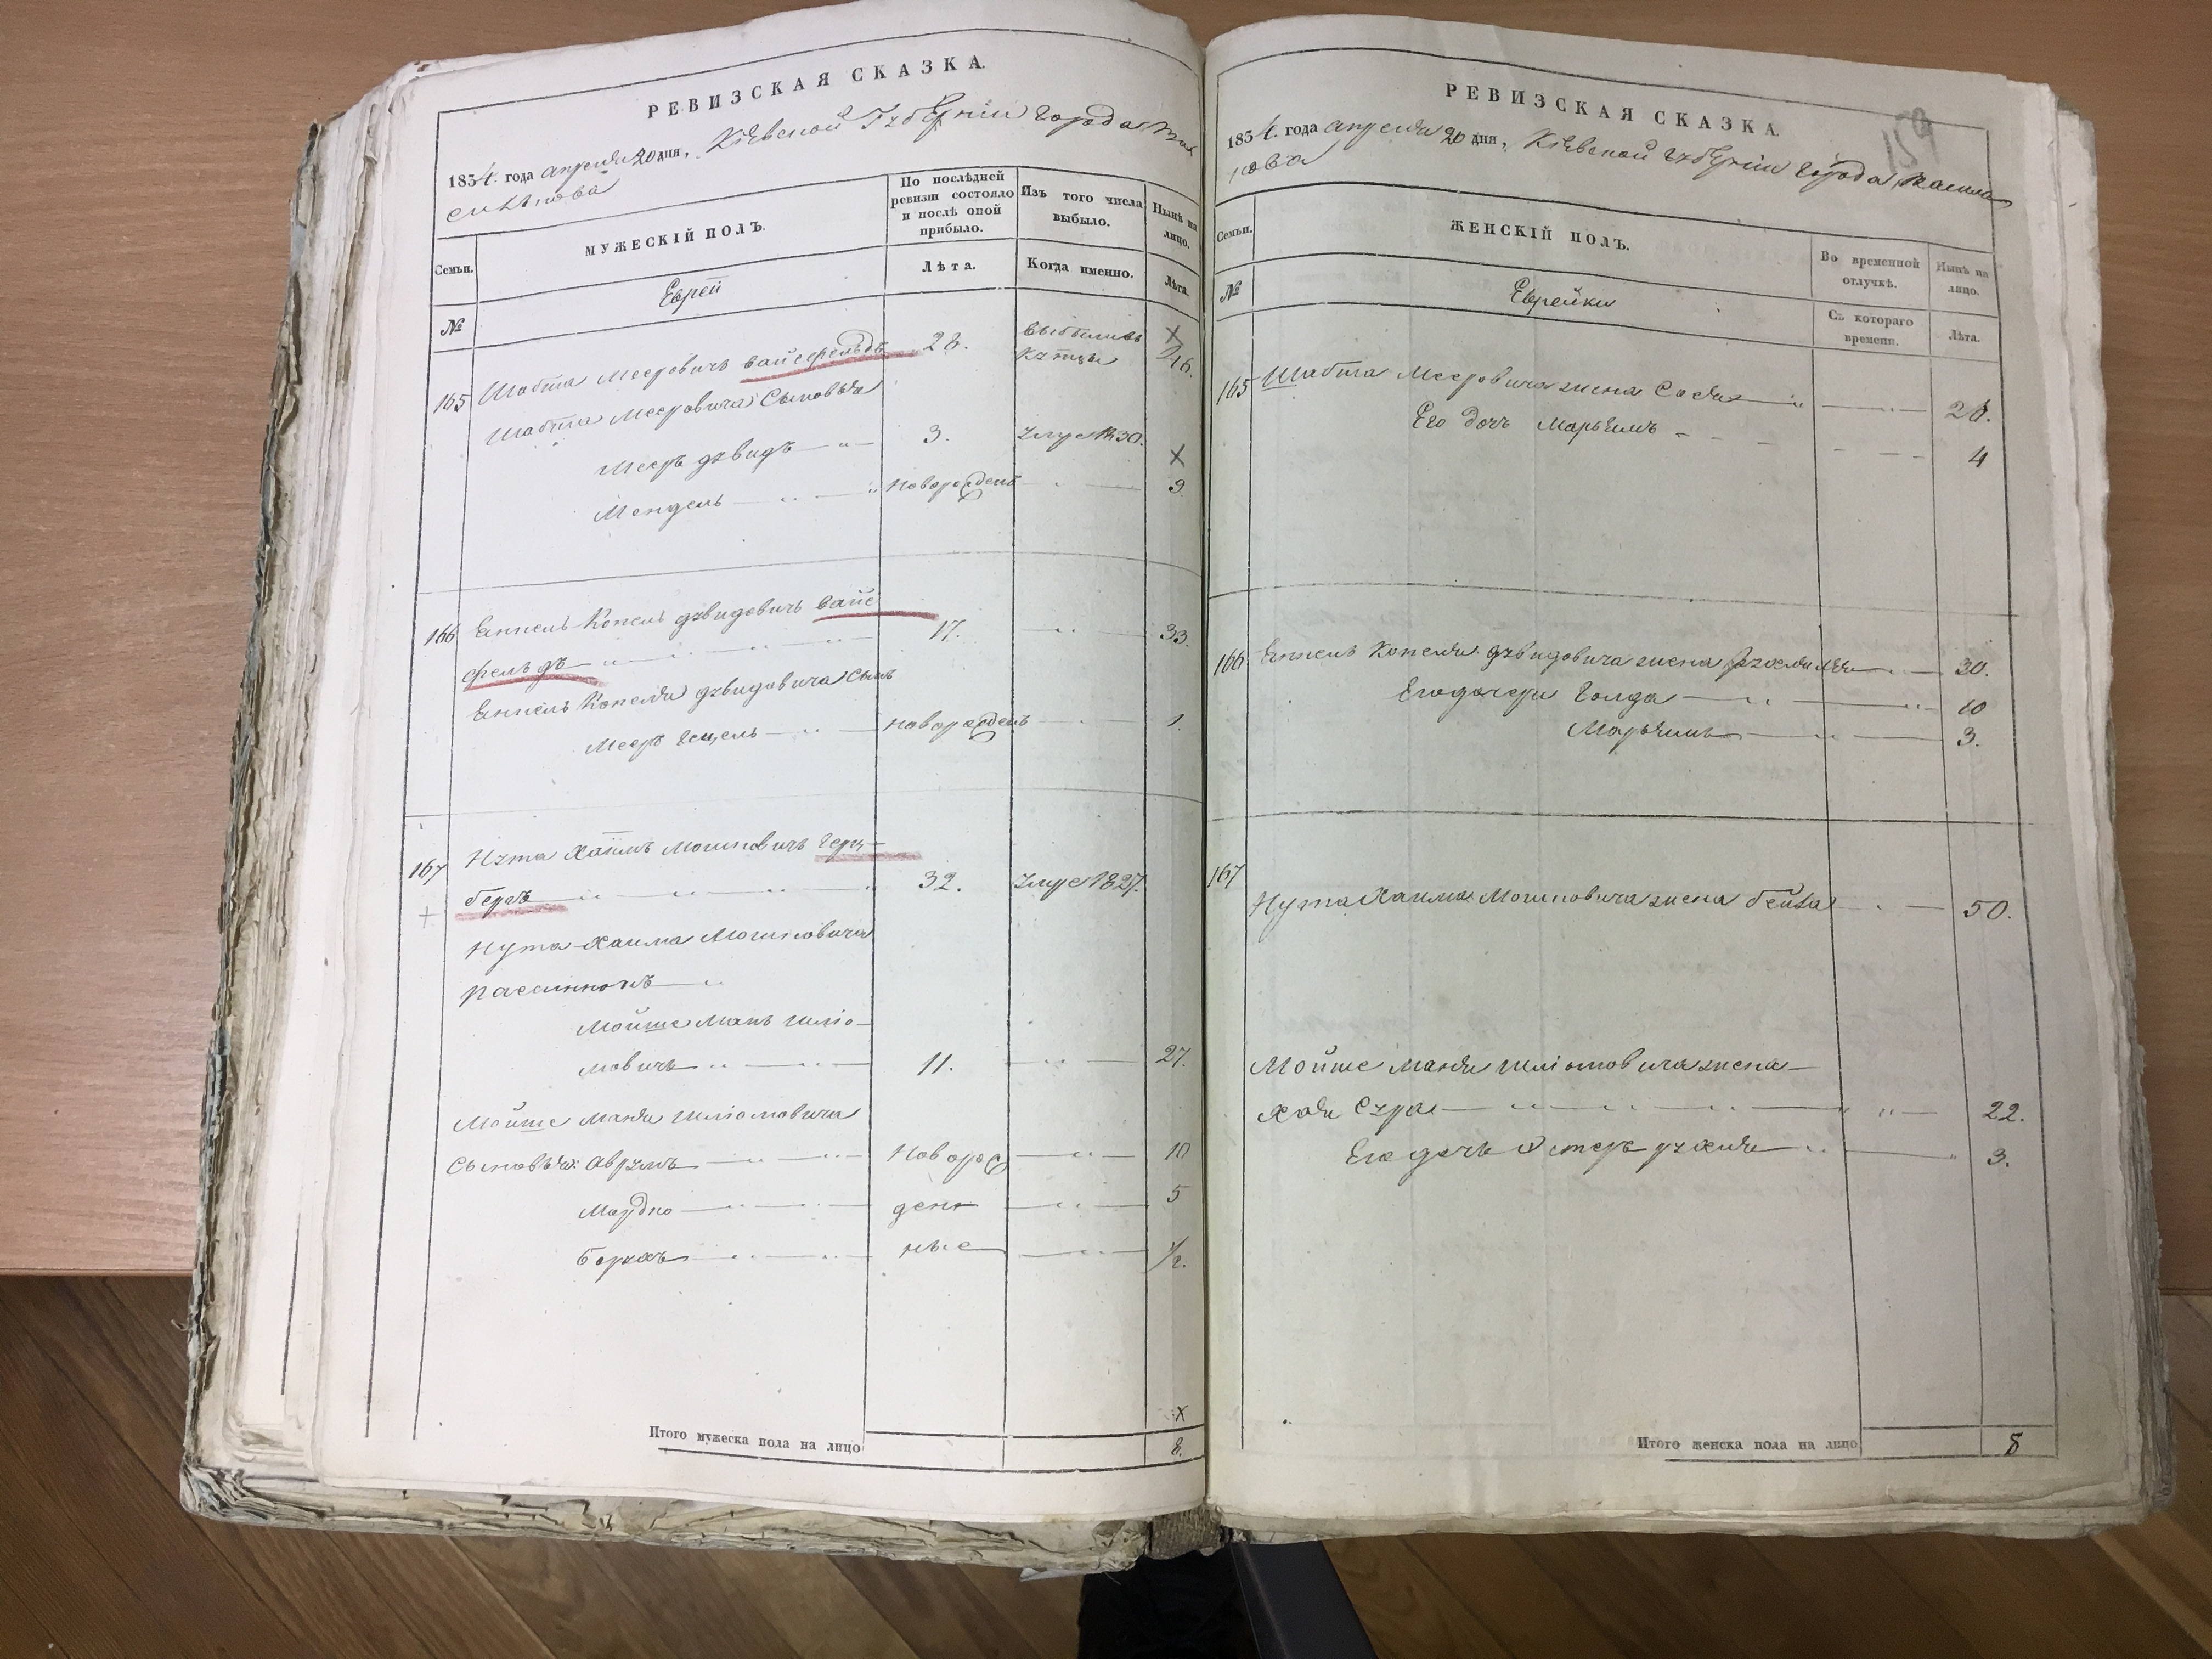 РЕВИЗСКАЯ СКАЗКА.
1834. года апреля 20 дня, Кіевской Губерніи города Ва
силькова
Семьи.
МУЖЕСКІЙ ПОЛЪ.
По послѣдней ревизіи состояло и послѣ оной прибыло.
Изъ того числа выбыло.
Нынѣ на лицо.
№
Еврей
Лѣта.
Когда именно.
Лѣта.
165
Шабта Меерович Вайсфельдъ 26. выбылъ въ
купцы
Шабта Мееровича Сыновья
Мееръ Дувидъ 3. умре 1830.
Мендель новорожденъ 9.
166
Копель Дувидовичъ Вайс
фельдъ 17. 33.
Копеля Дувидовича Сынъ
Меер новорожденъ 1.
167
Нута Хаимъ Мошковичъ Герц
бергъ 32. умре 1827.
Нута Хаима Мошковича
Пасынокъ
Мойше Манъ Шліо-
мовичъ 11. 27.
Мойше Маня Шліомовича
Сыновья: Аврумъ Новорож 10
Мордко ден 5
Борухъ ные 1/2.
Итого мужеска пола на лицо
8.
РЕВИЗСКАЯ СКАЗКА.
159
1834. года апреля 20 дня, Кіевской губерніи города Василь
кова
Семьи.
ЖЕНСКІЙ ПОЛЪ.
Во временной отлучкѣ.
Нынѣ на лицо.
№
Еврейки
Съ котораго времени.
Лѣта.
165 Шабта Мееровича жена Сося 26.
Его дочь Марьямъ 4
166 Копеля Дувидовича жена 30.
Его дочери Голда 10
Марьямъ 3.
167
Нута Хаима Мошковича жена Бейла 50.
Мойше Маня Шліомовича жена
Хая Сура 22.
Его дочь Эстеръ Рухля 3.
Итого женска пола на лицо
8